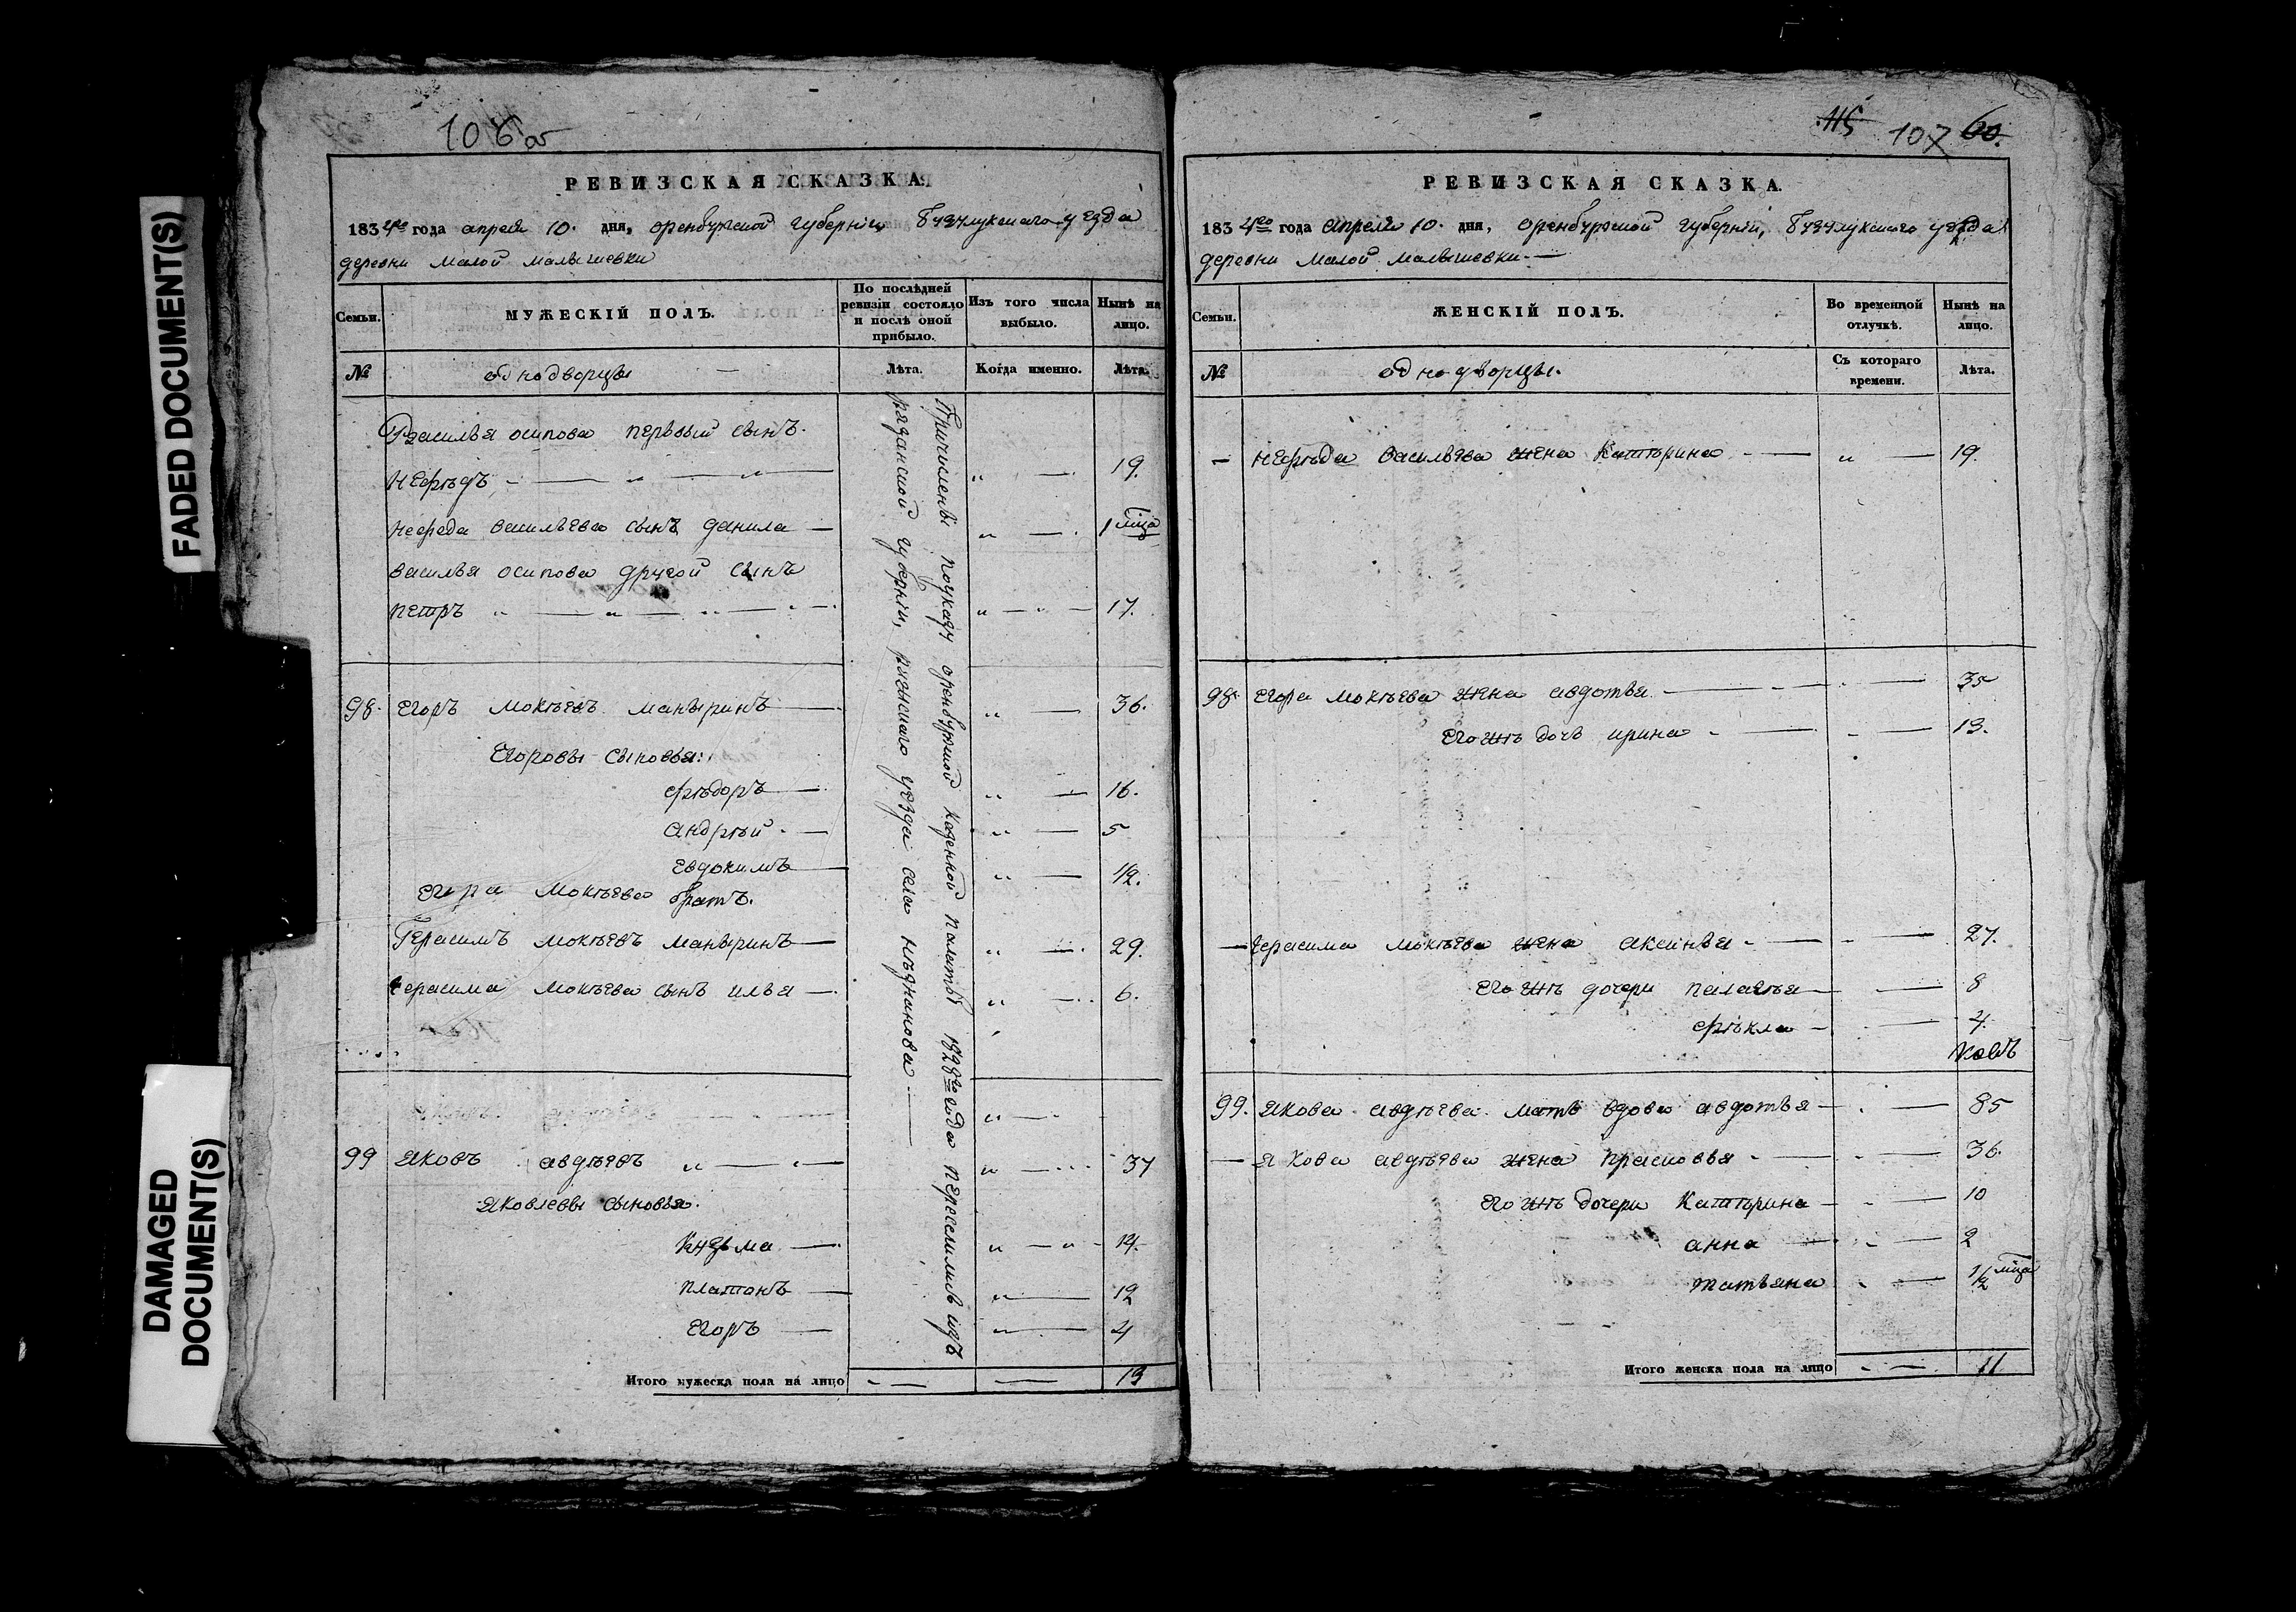 FADED DOCUMENT(S)
DAMAGED
DOCUMENT(S)
106 об
РЕВИЗСКАЯ СКАЗКА.
1834го года апреля 10. дня, оренбурской губернiи, бузулукскаго уезда
деревни малой малышевки
Семьи.
МУЖЕСКIЙ ПОЛЪ.
По послѣдней ревизiи состояло и послѣ оной прибыло.
Изъ того числа выбыло.
Нынѣ на лицо.
№
однодворцы
Лѣта.
Когда именно.
Лѣта.
василья осипова первый сынъ.
19.
нефеда васильева сынъ данила
1
василья осипова другой сынъ
петръ 17.
98. Егоръ мокѣевъ 36.
Егоровы сыновья:
фѣдоръ 16.
андрѣй 5
Евдокимъ 12.
егора мокѣева братъ.
Герасимъ мокѣевъ 29.
герасима мокѣева сынъ илья 6.
99 яковъ авдѣевъ 37
яковлевы сыновья.
кузьма 14.
платонъ 12
Егоръ 4
Причислены поуказу оренбурской казенной палаты 1828го года переселились изъ
рязанской губернiи, ряжскаго уезда села
Итого мужеска пола на лицо 13
115 107 60.
РЕВИЗСКАЯ СКАЗКА.
1834го года апреля 10. дня, оренбурской губернiи, бузулукскаго уезда
деревни малой малышевки
Семьи.
ЖЕНСКIЙ ПОЛЪ.
Во временной отлучкѣ.
Нынѣ на лицо.
№
однодворцы.
Съ котораго времени.
Лѣта.
васильева жена катѣрина 19.
98. Егора мокѣева жена авдотья 35
Его жъ дочь ирина 13.
герасима мокѣева жена аксинья 27.
Его жъ дочери пелагѣя 8
фѣкла 4.
99. якова авдѣева мать вдова авдотья 85
якова авдѣева жена прасковья 36.
его жъ дочери катѣрина 10
анна 2
татьяна 1/2
Итого женска пола на лицо 11